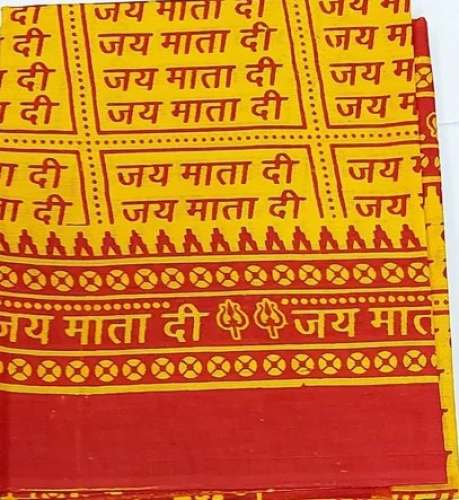 दी जय माता दी जय माता
दी जय माता दी जय माता
दी जय माता दी जय म
दी जय माता दी जय म
दी जय माता दी जय म
दी जय माता दी जय म
जय माता दी जय मात